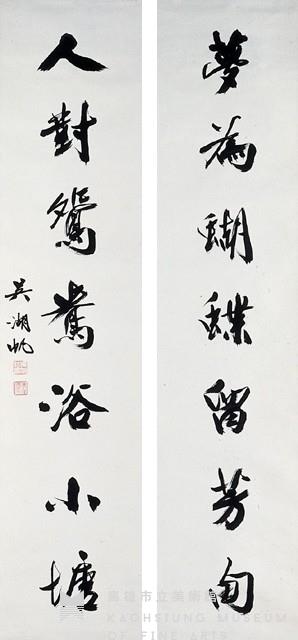 夢為蝴蝶留芳甸
人對鴛鴦浴小壚
吳湖帆
高雄市立美術館
KAOHSIUNG MUSEUM
OF FINE ARTS